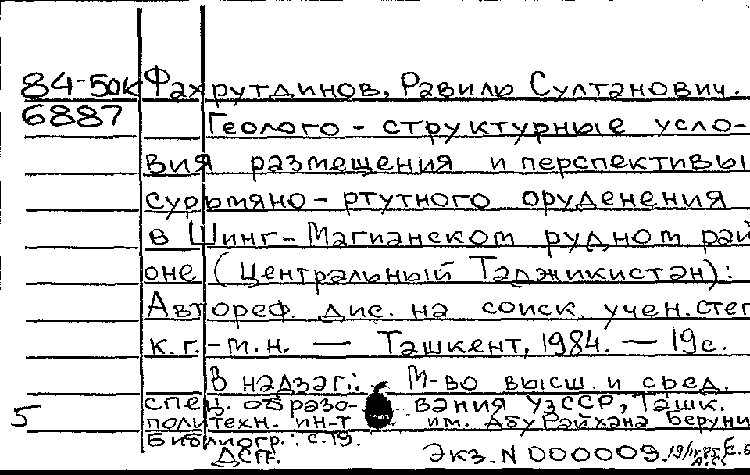 84-50к Фахрутдинов, Равиль Султанович.
6887 Геолого-структурные усло-
вия размещения и перспективы
сурьмяно-ртутного оруденения
в Шинг-Магианском рудном рай
оне (Центральный Таджикистан):
Автореф. дис. на соиск. учен. степ
к.г.-м.н. — Ташкент, 1984. — 19 с.
В надзаг.: М-во высш. и сред.
спец. образо- вания УзССР, Ташк.
5 политехн. ин-т им. Абу Райхана Беруни
Библиогр.: с.19.
ДСП. Экз. N 000009.